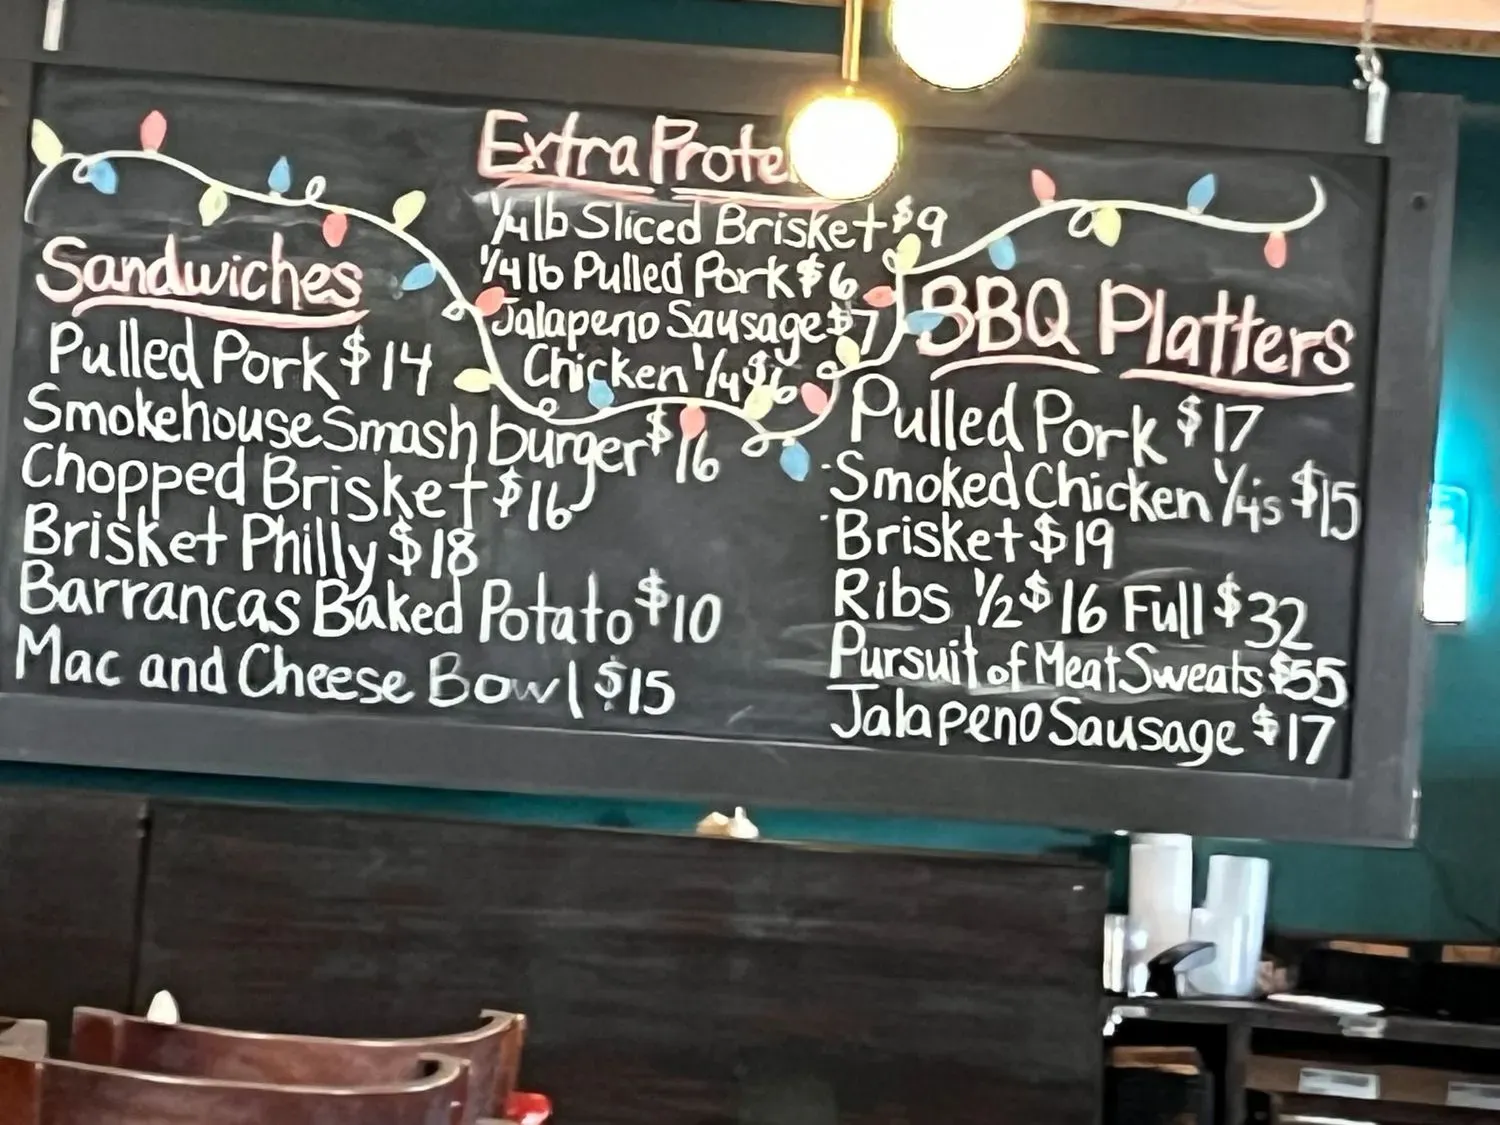 Sandwiches
Pulled Pork $14
Smokehouse Smash burger $16
Chopped Brisket $16
Brisket Philly $18
Barrancas Baked Potato $10
Mac and Cheese Bowl $15
Extra Prote
1/4 lb Sliced Brisket $9
1/4 lb Pulled Pork $6
Jalapeno Sausage $7
Chicken 1/4 $6
BBQ Platters
Pulled Pork $17
Smoked Chicken 1/4s $15
Brisket $19
Ribs 1/2 $16 Full $32
Pursuit of Meat Sweats $55
Jalapeno Sausage $17